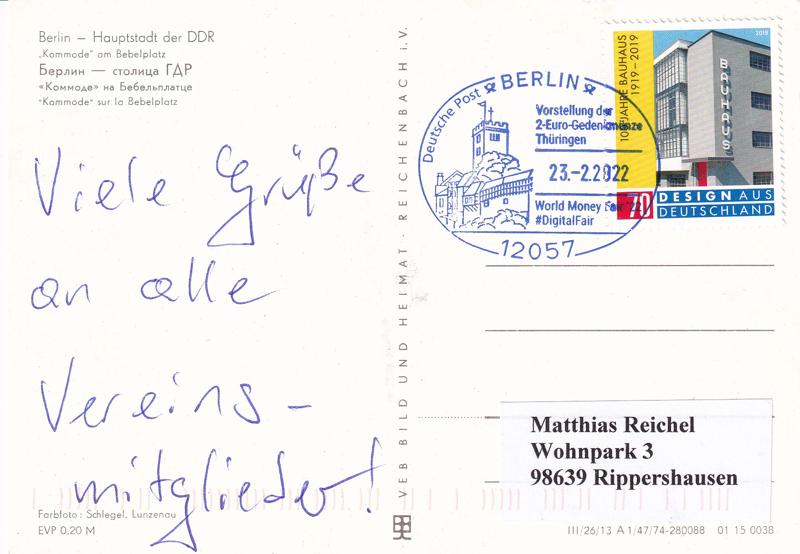 Berlin — Hauptstadt der DDR
„Kommode" am Bebelplatz
Берлин — столица ГДР
«Коммоде» на Бебельплатце
"Kommode" sur la Bebelplatz
Viele Grüße
an alle
Vereins-
mitglieder!
Farbfoto: Schlegel, Lunzenau
EVP 0,20 M
VEB BILD UND HEIMAT · REICHENBACH i. V.
Deutsche Post BERLIN
Vorstellung der
2-Euro-Gedenkmünze
Thüringen
23.-2.2022
World Money Fair '22
#DigitalFair
12057
100 JAHRE BAUHAUS
1919–2019
2019
BAUHAUS
70 DESIGN AUS
DEUTSCHLAND
Matthias Reichel
Wohnpark 3
98639 Rippershausen
III/26/13 A 1/47/74-280088 01 15 0038